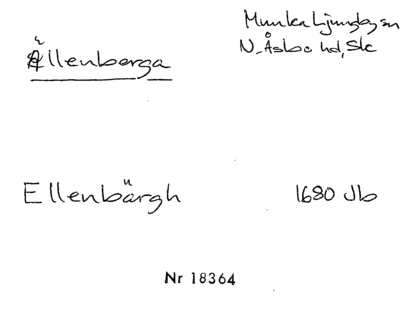 Munka Ljungby sn
Ällenberga
N. Åsbo hd, Sk
Ellenbärgh
1680 Jb
Nr 18364